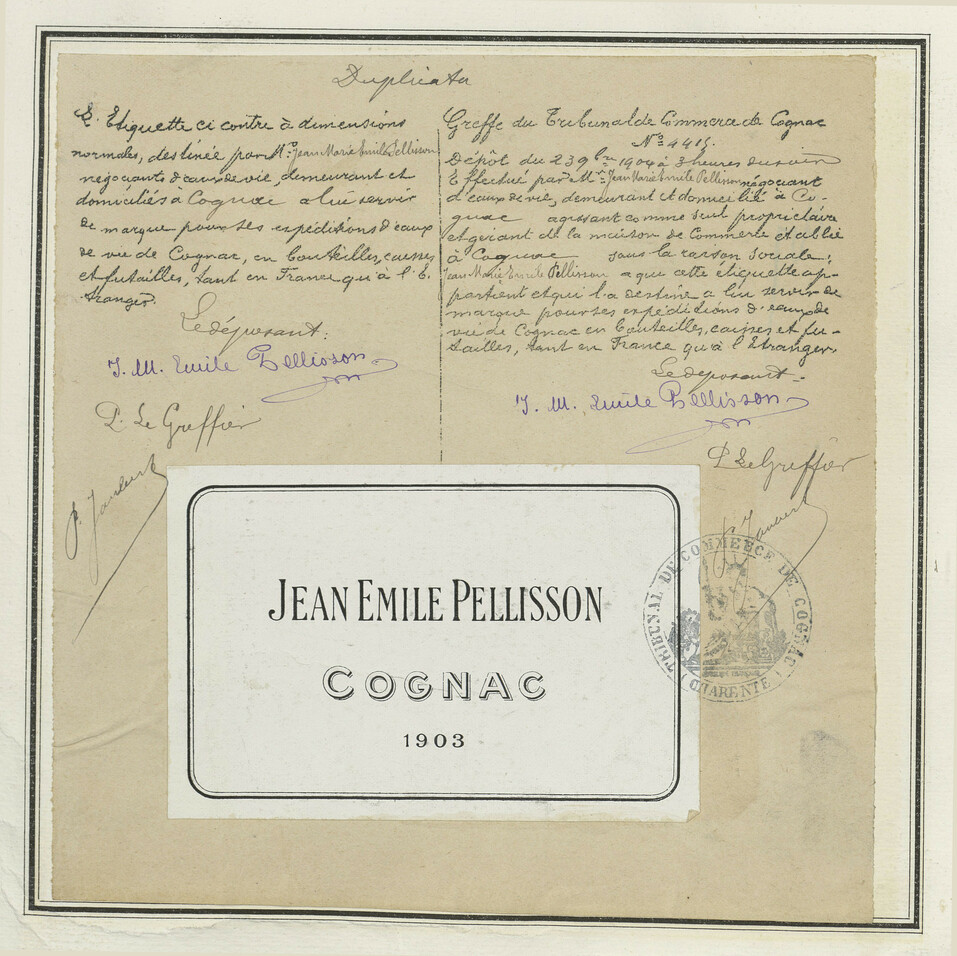 Duplicata
L'Etiquette ci contre à dimensions
normales, destinée par Mr Jean Marie Emile Pellisson
négociants d'eaux de vie, demeurant et
domiciliés à Cognac a lui servir
de marque pour ses expéditions d'eaux
de vie de Cognac, en bouteilles, caisses
et futailles, tant en France qu'à l'E
tranger.
Le déposant:
J. M. Emile Pellisson
P. Le Greffier
Greffe du Tribunal de Commerce de Cognac
No 4415.
Dépôt du 23 9bre 1904 à 3 heures du soir
Effectué par Mr Jean Marie Emile Pellisson négociant
d'eaux de vie, demeurant et domicilié à Co-
gnac agissant comme seul propriétaire
et gérant de la maison de Commerce établie
à Cognac sous la raison sociale:
Jean Marie Emile Pellisson a que cette étiquette ap-
partient et qui l'a destine a lui servir de
marque pour ses expéditions d'eaux de
vie de Cognac en bouteilles, caisses et fu-
tailles, tant en France qu'à l'Etranger.
Le deposant.
J. M. Emile Pellisson
P Le Greffier
JEAN EMILE PELLISSON
COGNAC
1903
TRIBUNAL DE COMMERCE DE COGNAC
(CHARENTE)